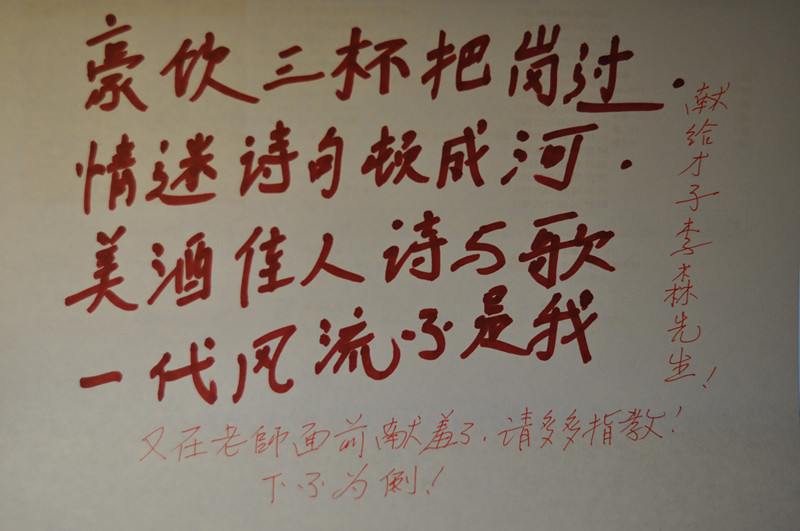 豪饮三杯把岗过.
情迷诗句顿成河.
美酒佳人诗与歌
一代风流不是我
献给才子李森先生!
又在老師面前献羞了.请多多指教!
下不为例!